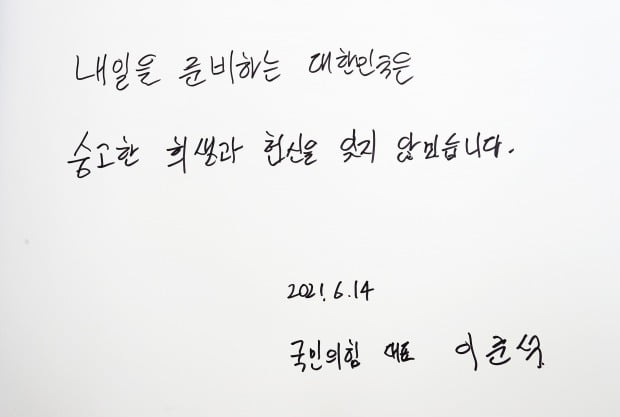 내일을 준비하는 대한민국은
숭고한 희생과 헌신을 잊지 않겠습니다.
2021. 6. 14
국민의힘 대표 이준석